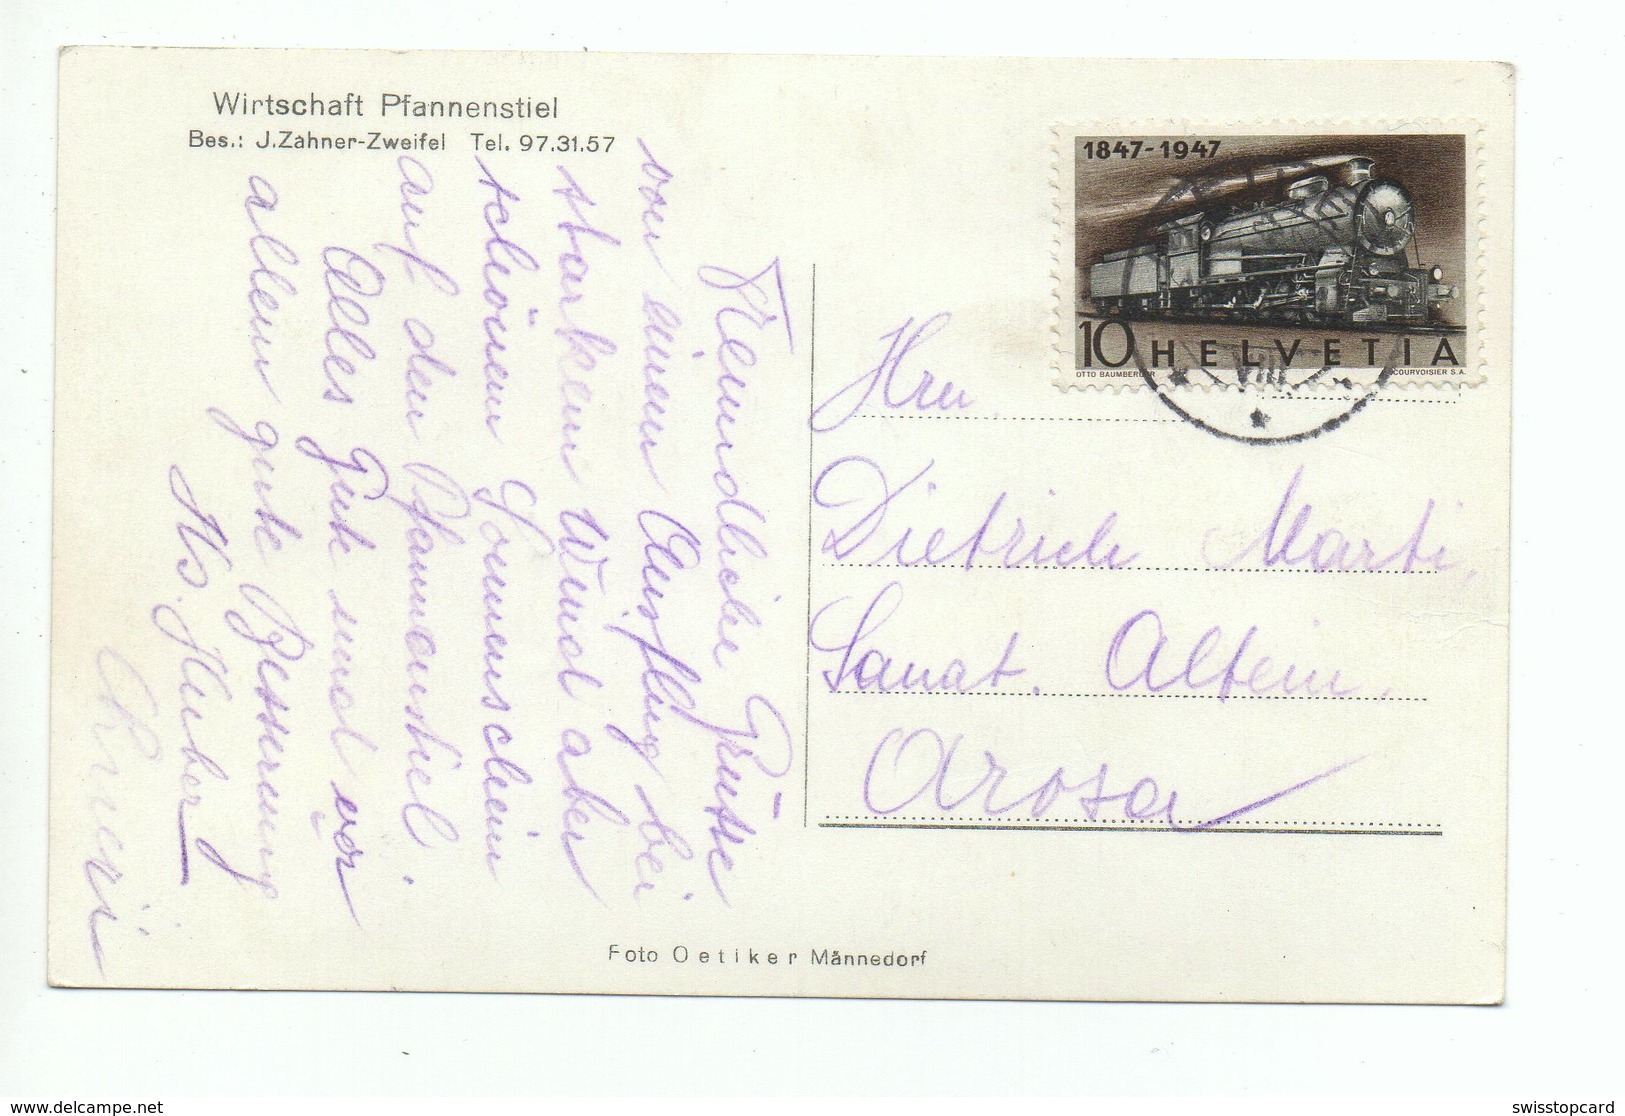 Wirtschaft Pfannenstiel
Bes.: J.Zahner-Zweifel Tel. 97.31.57
Freundliche Grüsse
von einem Ausflug bei
starkem Wind aber
schönem Sonnenschein
auf den Pfannenstiel.
Alles Gute und vor
allem gute Besserung
Hs. Huber
1847-1947
10 HELVETIA
OTTO BAUMBERGER COURVOISIER S.A.
VIII
Hrn.
Dietrich Marti,
Sanat. Altein,
Arosa
Foto Oetiker Männedorf
www.delcampe.net
swisstopcard